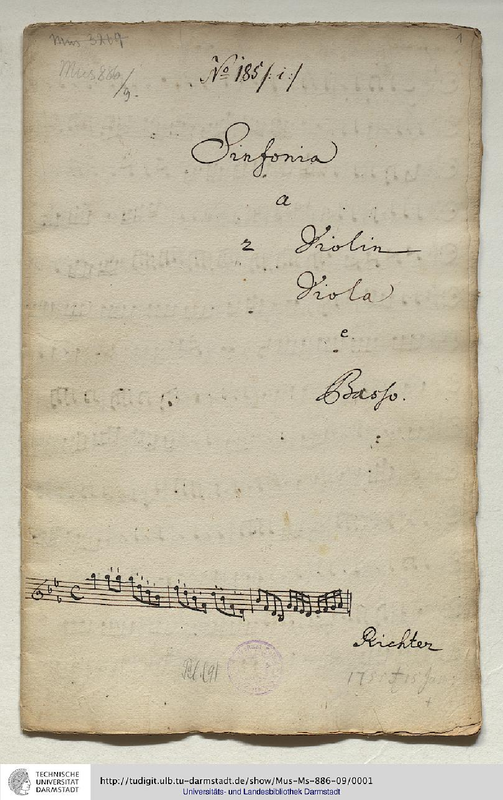 Mus 3267
1
Mus 886
/9.
No 185/:i:/
Sinfonia
a
2 Violin
Viola
e
Basso.
Richter
TECHNISCHE
UNIVERSITÄT
DARMSTADT
http://tudigit.ulb.tu-darmstadt.de/show/Mus-Ms-886-09/0001
Universitäts- und Landesbibliothek Darmstadt